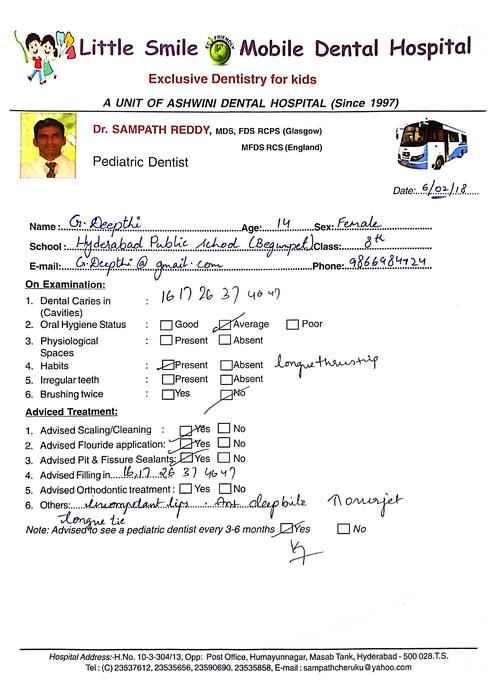 Little Smile ECO FRIENDLY Mobile Dental Hospital
Exclusive Dentistry for kids
A UNIT OF ASHWINI DENTAL HOSPITAL (Since 1997)
Dr. SAMPATH REDDY, MDS, FDS RCPS (Glasgow)
MFDS RCS (England)
Pediatric Dentist
Date: 6/02/18
Name: G. Deepthi Age: 14 Sex: Female
School: Hyderabad Public school (Begumpet) Class: 8th
E-mail: G.Deepthi@gmail.com Phone: 9866984724
On Examination:
1. Dental Caries in : 16 17 26 37 46 47
(Cavities)
2. Oral Hygiene Status : Good Average Poor
3. Physiological : Present Absent
Spaces
4. Habits : Present Absent tongue thrusting
5. Irregular teeth : Present Absent
6. Brushing twice : Yes No
Adviced Treatment:
1. Advised Scaling/Cleaning : Yes No
2. Advised Flouride application: Yes No
3. Advised Pit & Fissure Sealants: Yes No
4. Advised Filling in 16,17 26 37 46 47
5. Advised Orthodontic treatment: Yes No
6. Others: incompetant lips . Ant deepbite
tongue tie
Note: Advised to see a pediatric dentist every 3-6 months Yes No
Hospital Address:-H.No. 10-3-304/13, Opp: Post Office, Humayunnagar, Masab Tank, Hyderabad - 500 028.T.S.
Tel : (C) 23537612, 23535656, 23590690, 23535858, E-mail : sampathcheruku@yahoo.com